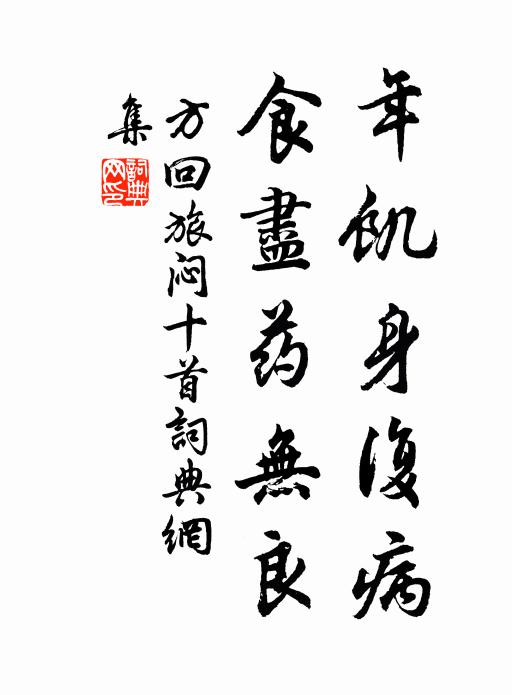 年飢身復病
食盡药無良
方回旅闷十首詞典網
集
詞典
网印